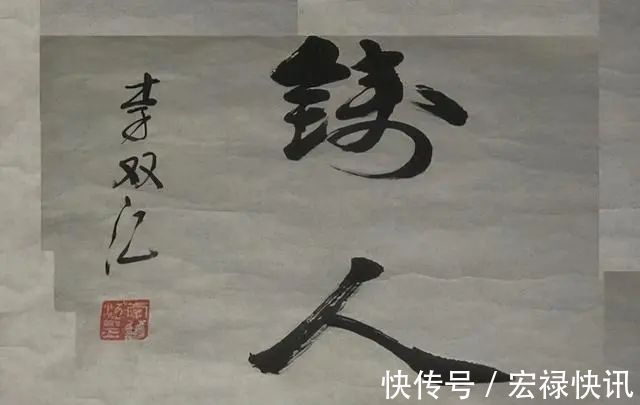 铸人
李双江
快传号 / 宏禄快讯